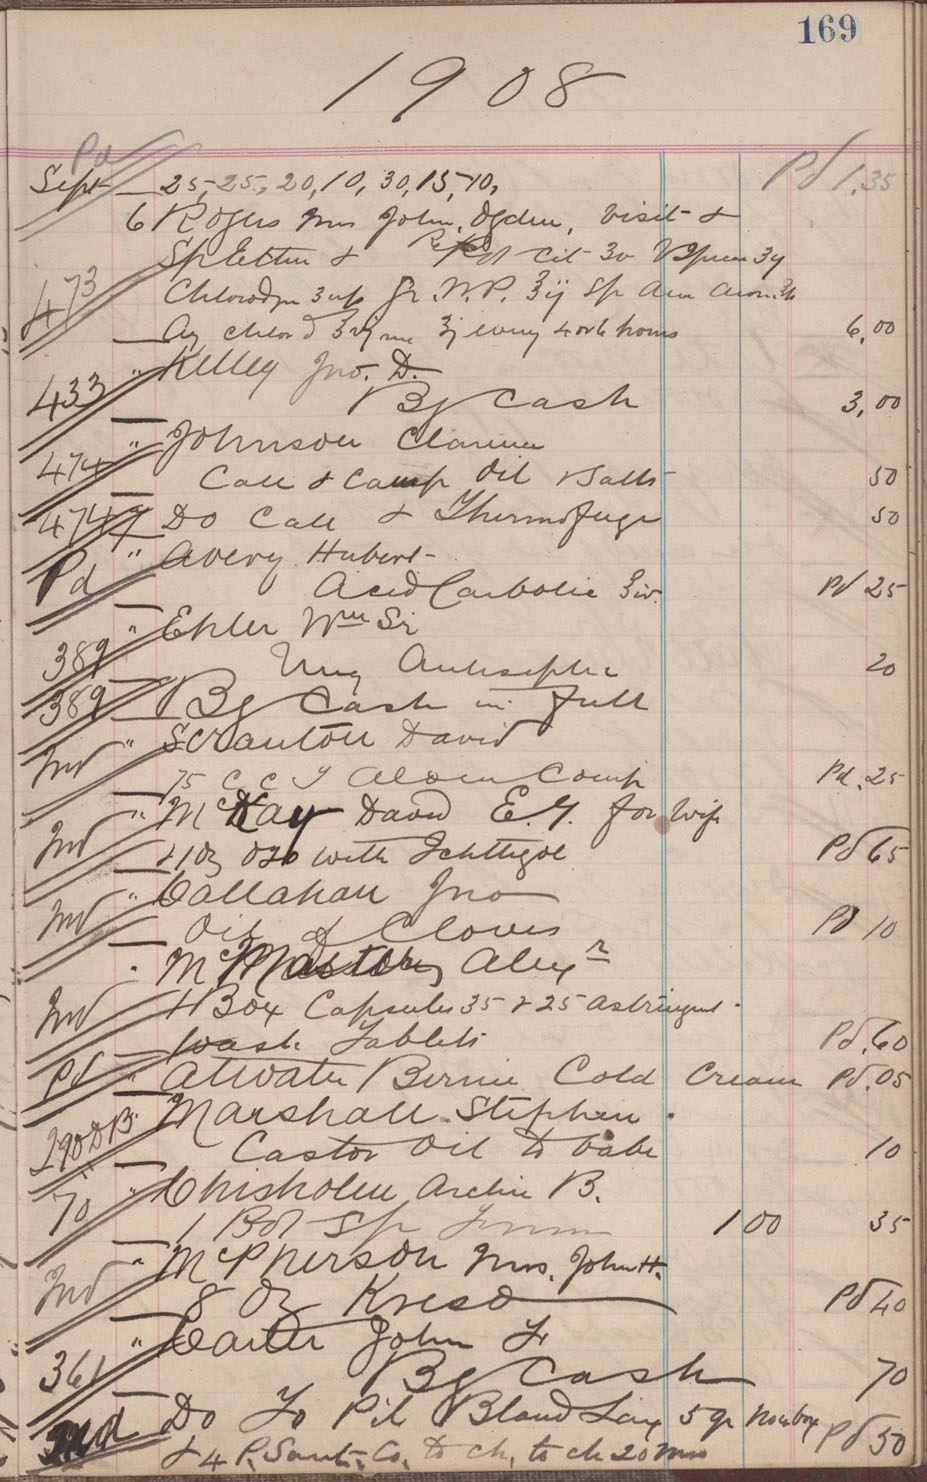 169
1908
Pd
Sept 25, 25, 20, 10, 30, 15, 10, Pd 1.35
6 Rogers Mrs John, Ogden, Visit &
473 Sp Etten & Pot Cit
Chlorodyn Sp Am Arom
Aq Chlor every 4 or 6 hours 6.00
433 " Kelley Jno. D.
By Cash 3.00
474 " Johnson Clarence
Call & Camp Oil & Salts 50
474 Do Call & Thermofuge 50
Pd " Avery Hubert
Acid Carbolic 3iv. Pd 25
389 " Ehler Wm Sr
Ung Antiseptic 20
389 By Cash in full
Ind " Scranton David
75 C C T Comp Pd. 25
Ind " McKay David E. Y. for Wife
& 1 oz with Ichthyol Pd 65
Ind " Callahan Jno
Oil of Cloves Pd 10
Ind " McMaster Alexr
1 Box Capsules 35 & 25 Astringent
Wash Tablets Pd. 60
Pd " Atwater Bernie Cold Cream Pd. 05
290 DB " Marshall Stephen
Castor Oil to babe 10
70 " Chisholm Archie B.
1 Bot Sp 1 00 35
Ind " McPherson Mrs. John H.
8 Oz Kreso Pd 40
361 " Carter John Fr
By Cash 70
Ind Do To Pil Bland Lax 5 gr Pd 50
& 4 P. Sant. Co. to ch, to ch 20